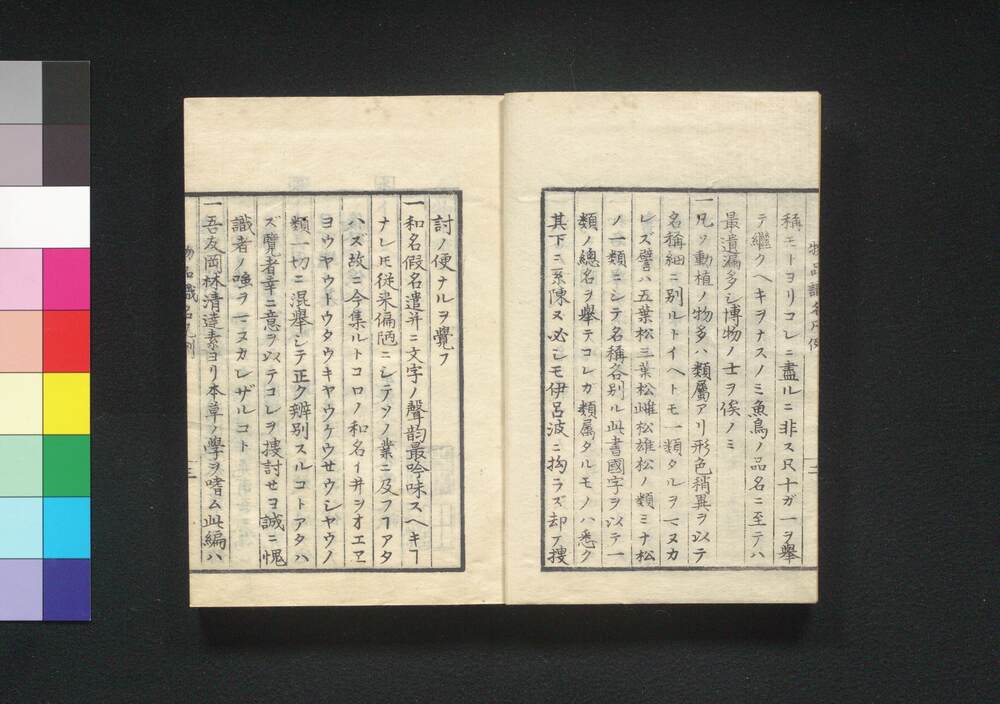 物品識名凡例
稱モトヨリコレニ盡ルニ非ス只十ガ一ヲ舉
テ繼クヘキヲナスノミ魚鳥ノ品名ニ至テハ
最遺漏多シ博物ノ士ヲ俟ノミ
一凡ソ動植ノ物多ハ類属アリ形色稍異ヲ以テ
名稱細ニ別ルトイヘトモ一類タルヲマヌカ
レズ譬ハ五葉松三葉松雌松雄松ノ類ミナ松
ノ一類ニシテ名稱各別ル此書國字ヲ以テ一
類ノ總名ヲ舉テコレカ類属タルモノハ悉ク
其下ニ系陳ス必シモ伊呂波ニ拘ラズ却テ搜
討ノ便ナルヲ覺フ
一和名假名遣并ニ文字ノ聲韵最吟味スヘキヿ
ナレㇹ゙モ従来偏陋ニシテソノ業ニ及フヿアタ
ハズ故ニ今集ルトコロノ和名イ井ヲオエヱ
ヨウヤウトウタウキヤウケウセウシヤウノ
類一切ニ混舉シテ正ク辨別スルコトアタハ
ズ覽者幸ニ意ヲ以テコレヲ搜討セヨ誠ニ愧
識者ノ嗤ヲマヌカレザルコト
一吾友岡林清達素ヨリ本草ノ學ヲ嗜ム此編ハ
物品識名凡例
三